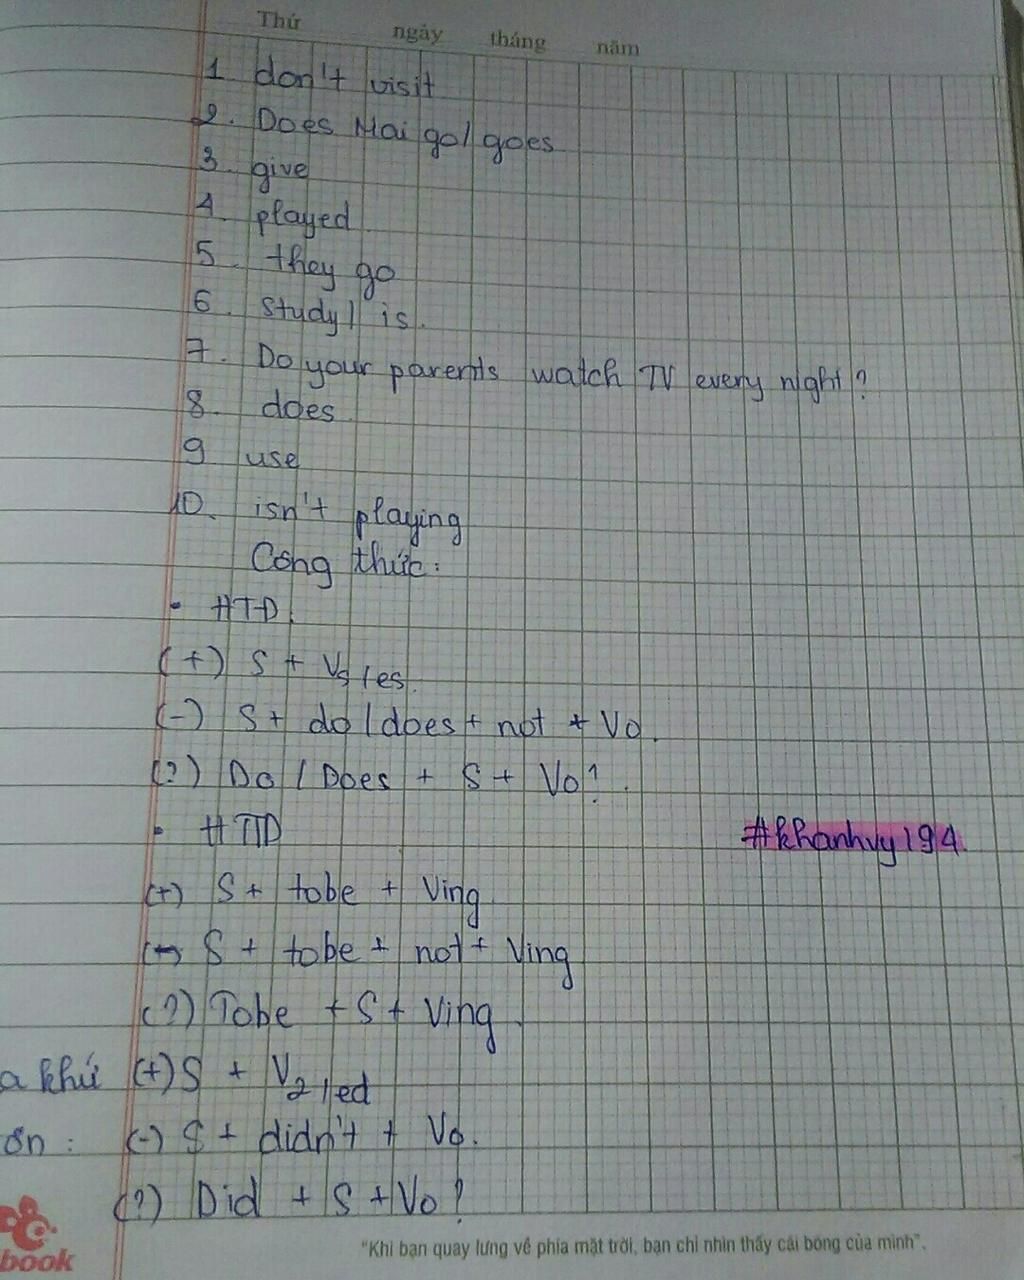 Thứ ngày tháng năm
1. don't visit
2. Does Mai go / goes
3. give
4. played
5. they go
6. study / is.
7. Do your parents watch TV every night?
8. does
9. use
10. isn't playing
Công thức:
• HTĐ:
(+) S + Vs/es.
(-) S + do / does + not + Vo.
(?) Do / Does + S + Vo?
• HTTD
#khanhvy194.
(+) S + tobe + Ving
(-) S + tobe + not + Ving
(?) Tobe + S + Ving
a khứ (+) S + V2/ed
ơn: (-) S + didn't + Vo.
(?) Did + S + Vo?
book
"Khi bạn quay lưng về phía mặt trời, bạn chỉ nhìn thấy cái bóng của mình".